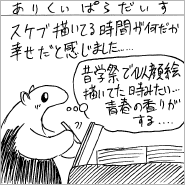 ありくいぱらだいす
スケブ描いてる時間が何だか
幸せだと感じました……
昔学祭で似顔絵
描いてた時みたい…
青春の香りが
する‥‥